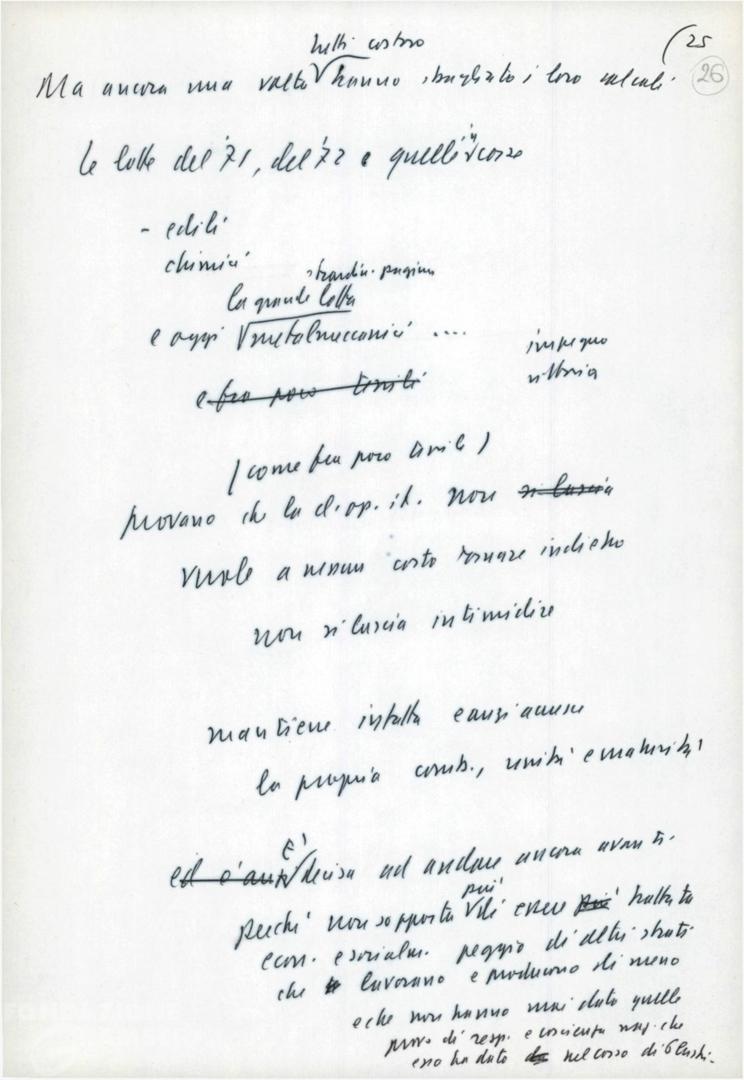 (25
26
tutti costoro
Ma ancora una volta √ hanno sbagliato i loro calcoli
Le lotte del '71, del '72 e quelle in √ corso
- edili
chimici
straordin. pagina
la grande lotta
e oggi √ metalmeccanici ....
impegno
vittoria
e fra poco tessili
(come fra poco tessili)
provano che la cl. op. it. non si lascia
vuole a nessun costo tornare indietro
non si lascia intimidire
mantiene intatta e anzi accresce
la propria comb., unità e maturità
È
ed è anzi √ decisa ad andare ancora avanti.
più
perché non sopporta √ di essere più trattata
econ. e socialm. peggio di altri strati
che lavorano e producono di meno
e che non hanno mai dato quelle
prove di resp. e coscienza naz. che
essa ha dato nel corso di